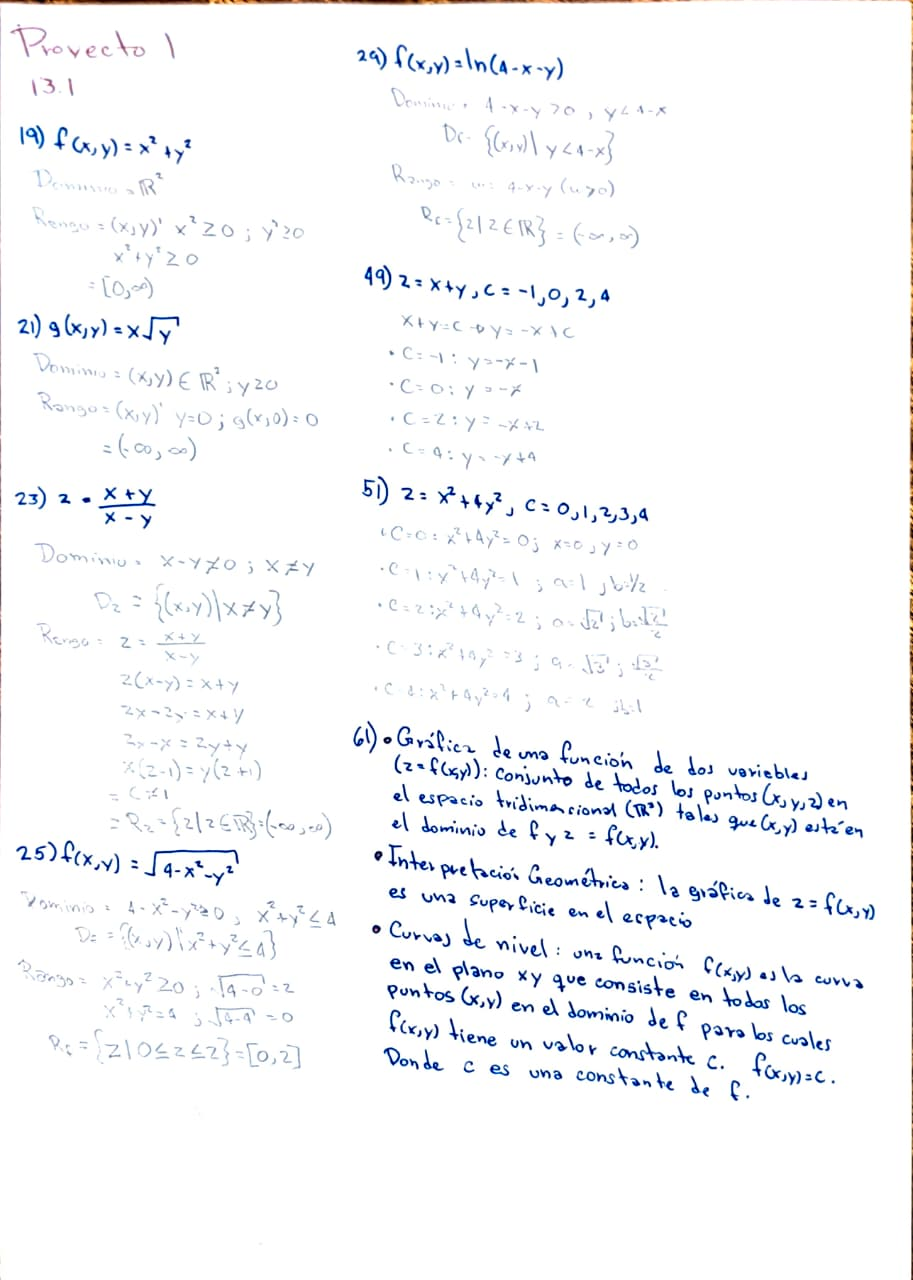 Proyecto 1
13.1
19) f(x,y) = x² + y²
Dominio = ℝ²
Rango = (x,y)' x² ≥ 0 ; y² ≥ 0
x² + y² ≥ 0
= [0,∞)
21) g(x,y) = x√y
Dominio = (x,y) ∈ ℝ² ; y ≥ 0
Rango = (x,y)' y=0 ; g(x,0) = 0
= (-∞, ∞)
23) z = x + y / x - y
Dominio = x-y≠0 ; x≠y
Dz = {(x,y)|x≠y}
Rango = z = x+y / x-y
z(x-y) = x+y
zx-zy = x+y
zx-x = zy+y
x(z-1) = y(z+1)
= C≠1
= Rz = {z|z∈ℝ} = (-∞,∞)
25) f(x,y) = √4-x²-y²
Dominio = 4-x²-y²≥0 , x²+y² ≤ 4
D = {(x,y)|x²+y² ≤ 4}
Rango = x²+y² ≥ 0 ; √4-0 = 2
x²+y²=4 ; √4-4 = 0
Rf = {z|0≤z≤2} = [0,2]
29) f(x,y) = ln(4-x-y)
Dominio = 4-x-y>0 , y<4-x
Df = {(x,y)| y<4-x}
Rango = u = 4-x-y (u>0)
Rf = {z|z∈ℝ} = (-∞,∞)
49) z = x+y , C = -1, 0, 2, 4
x+y=C → y=-x+C
• C=-1 : y=-x-1
• C=0 : y=-x
• C=2 : y=-x+2
• C=4 : y=-x+4
51) z = x²+4y² , C = 0,1,2,3,4
• C=0 : x²+4y²=0 ; x=0 , y=0
• C=1 : x²+4y²=1 ; a=1 , b=1/2
• C=2 : x²+4y²=2 ; a=√2 ; b=√2/2
• C=3 : x²+4y²=3 ; a=√3 ; √3/2
• C=4 : x²+4y²=4 ; a=2 ; b=1
61) • Gráfica de una función de dos variables
(z=f(x,y)): conjunto de todos los puntos (x,y,z) en
el espacio tridimensional (ℝ³) tales que (x,y) está en
el dominio de f y z = f(x,y).
• Interpretación Geométrica : la gráfica de z = f(x,y)
es una superficie en el espacio
• Curvas de nivel : una función f(x,y) es la curva
en el plano xy que consiste en todos los
puntos (x,y) en el dominio de f para los cuales
f(x,y) tiene un valor constante c. f(x,y)=c.
Donde c es una constante de f.